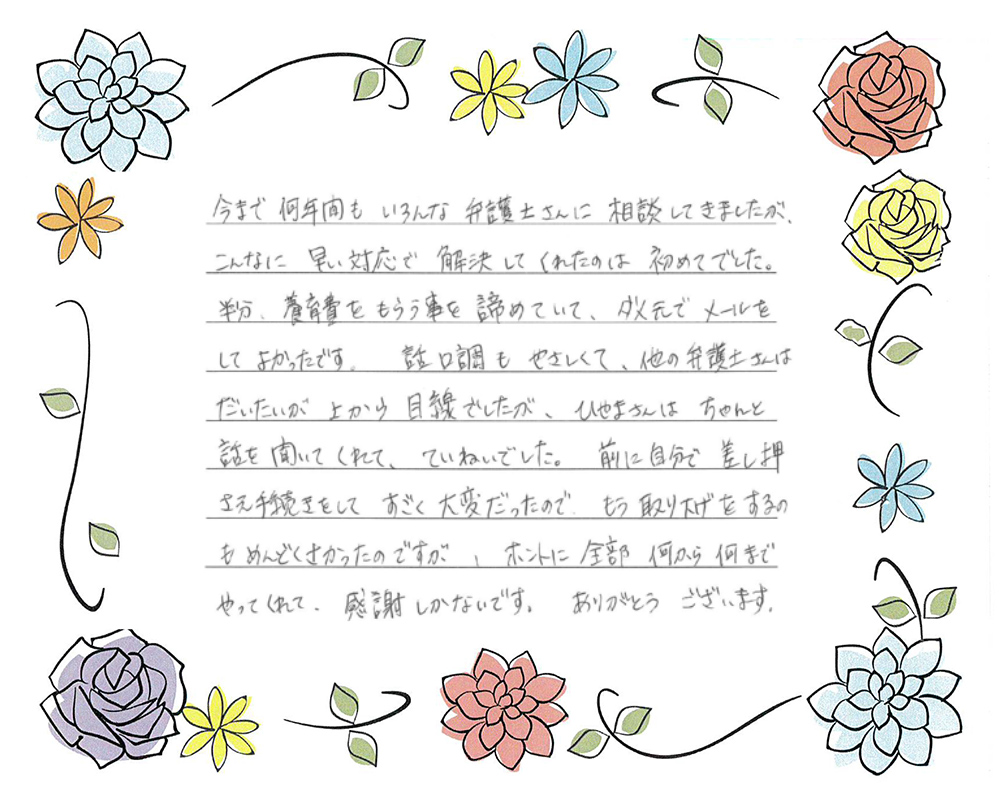 今まで 何年間も いろんな 弁護士さんに 相談してきましたが、
こんなに 早い対応で 解決してくれたのは 初めてでした。
半分、養育費をもらう事を 諦めていて、ダメ元で メールを
してよかったです。 話口調も やさしくて、他の弁護士さんは
だいたいが 上から 目線でしたが、ひやまさんは ちゃんと
話を聞いてくれて、ていねいでした。 前に自分で 差し押
さえ手続きをして すごく 大変だったので もう取り下げをするの
もめんどくさかったのですが、ホントに 全部 何から何まで
やってくれて、感謝しかないです。 ありがとう ございます。